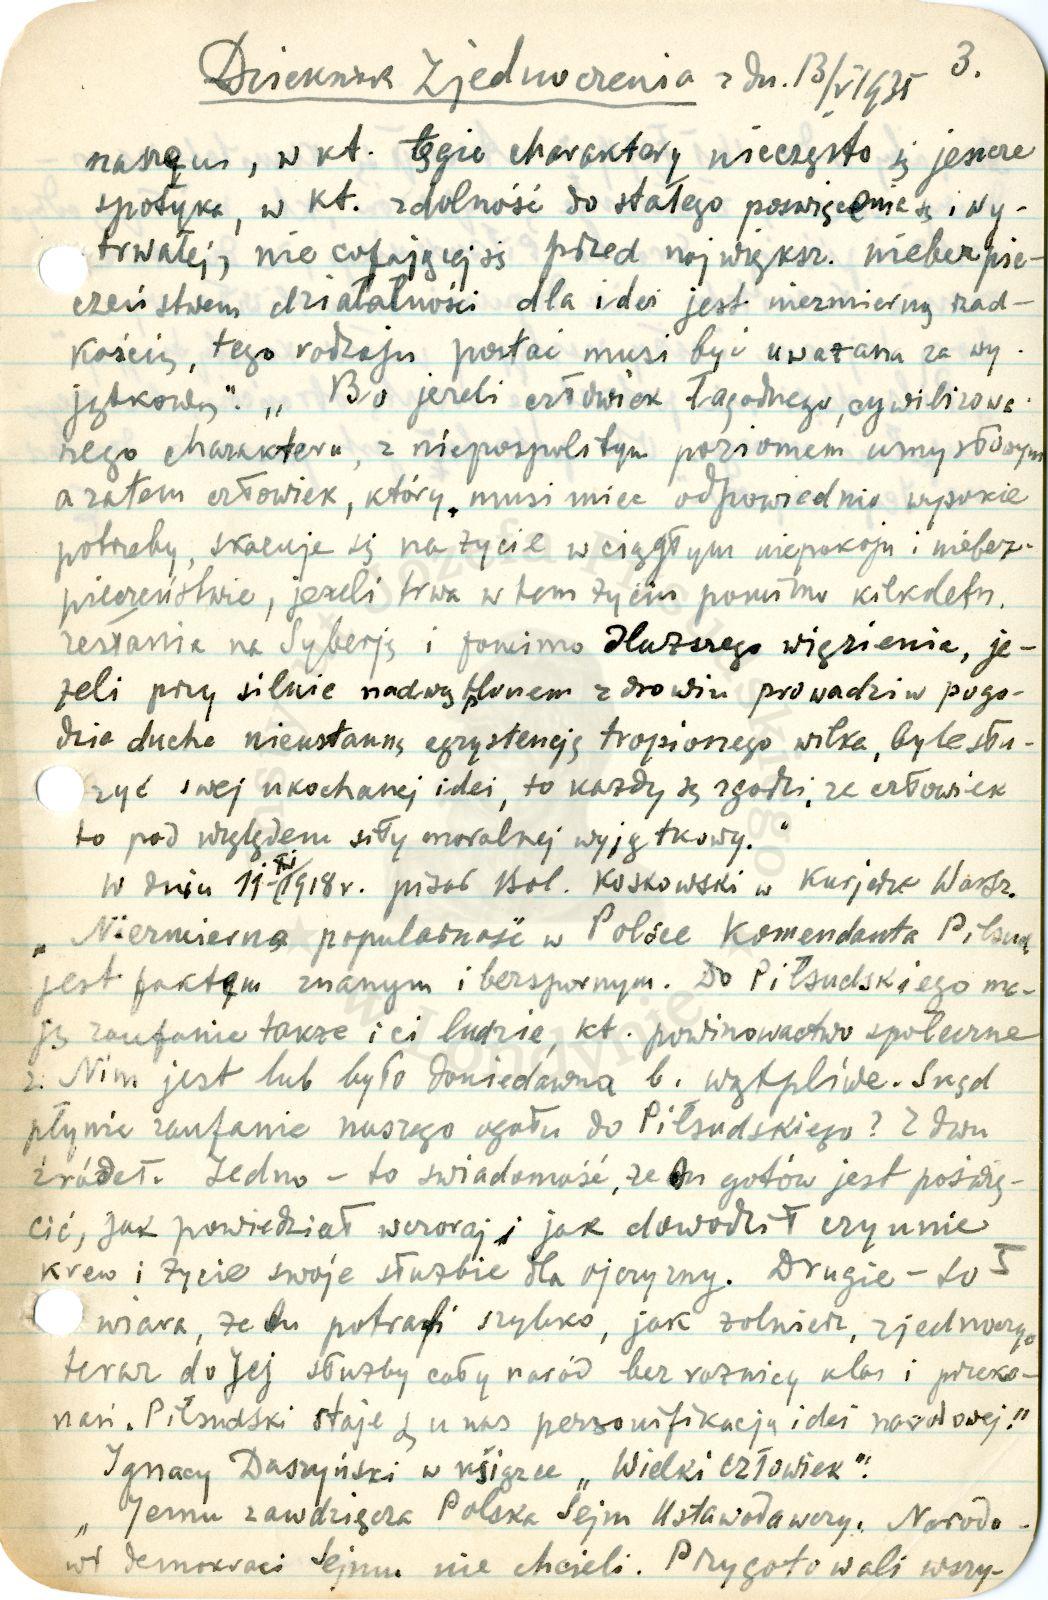 Dziennik Zjednoczenia z dn. 13/VI 1935 3.
naszem, w kt. tęgie charaktery nieczęsto się jeszcze
spotyka, w kt. zdolność do stałego poświęcenia się i wy-
trwałej, nie cofającej się przed najwięksr. niebezpie-
czeństwem działalności dla idei jest niezmierną rzad-
kością, tego rodzaju postać musi być uważana za wy-
jątkową". „Bo jeżeli człowiek łagodnego, cywilizowa-
nego charakteru, z niepospolitym poziomem umysłowym
a zatem człowiek, który musi mieć odpowiednio wysokie
potrzeby, skazuje się na życie w ciągłym niepokoju i niebez-
pieczeństwie, jeżeli trwa w tem życiu pomimo kilkoletn.
zesłania na Syberję i pomimo dłuższego więzienia, je-
żeli przy silnie nadwątlonem zdrowiu prowadzi w pogo-
dzie ducha nieustanną egzystencję tropionego wilka, byle słu-
żyć swej ukochanej idei, to każdy się zgodzi, że człowiek
to pod względem siły moralnej wyjątkowy."
W dniu 11/XI 1918 r. pisał Bol. Koskowski w Kurjerze Warsz.
„Niezmierna popularność w Polsce Komendanta Piłsud
jest faktem znanym i bezspornym. Do Piłsudskiego ma-
ją zaufanie także i ci ludzie, kt. powinowactwo społeczne
z Nim jest lub było doniedawna b. wątpliwe. Skąd
płynie zaufanie naszego ogółu do Piłsudskiego? Z dwu
źródeł. Jedno – to świadomość, że On gotów jest poświę-
cić, jak powiedział wczoraj i jak dowodził czynnie
krew i życie swoje służbie dla ojczyzny. Drugie – to
wiara, że On potrafi szybko, jak żołnierz, zjednoczyć
teraz do Jej służby cały naród bez różnicy klas i przeko-
nań. Piłsudski staje się u nas personifikacją idei narodowej."
Ignacy Daszyński w książce „Wielki Człowiek":
„Jemu zawdzięcza Polska Sejm Ustawodawczy. Narodo-
wi demokraci Sejmu nie chcieli. Przygotowali wszy-
w Londynie